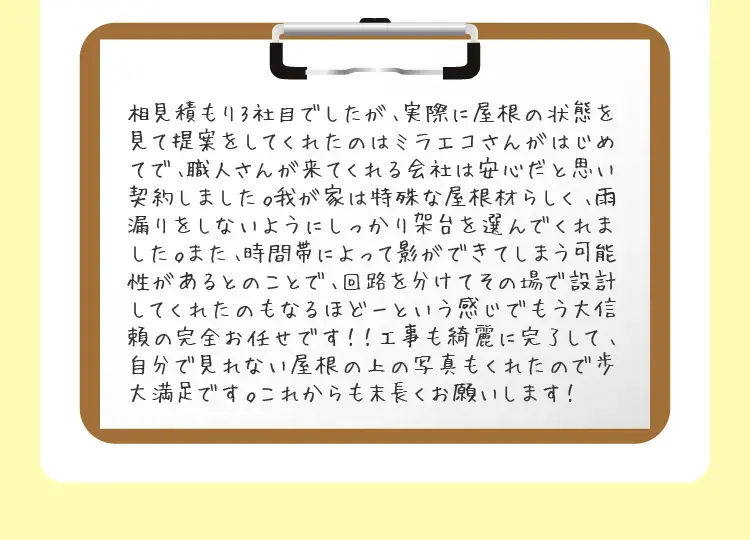 相見積もり3社目でしたが、実際に屋根の状態を
見て提案をしてくれたのはミラエコさんがはじめ
てで、職人さんが来てくれる会社は安心だと思い
契約しました。我が家は特殊な屋根材らしく、雨
漏りをしないようにしっかり架台を選んでくれま
した。また、時間帯によって影ができてしまう可能
性があるとのことで、回路を分けてその場で設計
してくれたのもなるほどーという感じでもう大信
頼の完全お任せです!!工事も綺麗に完了して、
自分で見れない屋根の上の写真もくれたので歩
大満足です。これからも末長くお願いします!